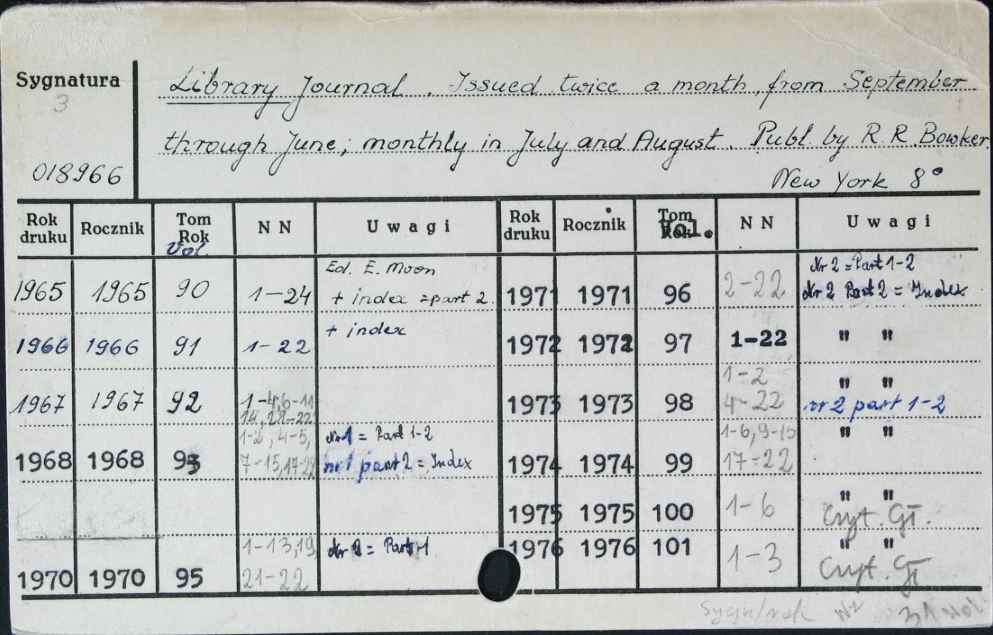 Sygnatura
3
018966
Library Journal. Issued twice a month, from September
through June; monthly in July and August. Publ. by R R Bowker
New York 8°
Rok druku Rocznik Tom Rok Vol. NN Uwagi
1965 1965 90 1-24 Ed. E. Moon + index = part 2.
1966 1966 91 1-22 + index
1967 1967 92 1-4,6-11
1968 1968 93 7-15, Nr 1 = Part 1-2 nr 1 part 2 = Index
1970 1970 95 1-13,19 21-22 Nr 2 = Part 1
Rok druku Rocznik Tom Vol. NN Uwagi
1971 1971 96 2-22 Nr 2 = Part 1-2 Nr 2 Part 2 = Index
1972 1972 97 1-22 " "
1973 1973 98 1-2 4-22 " " nr 2 part 1-2
1974 1974 99 1-6,9-15 17-22 " "
1975 1975 100 1-6 " " Czyt. Gł.
1976 1976 101 1-3 " " Czyt. Gł